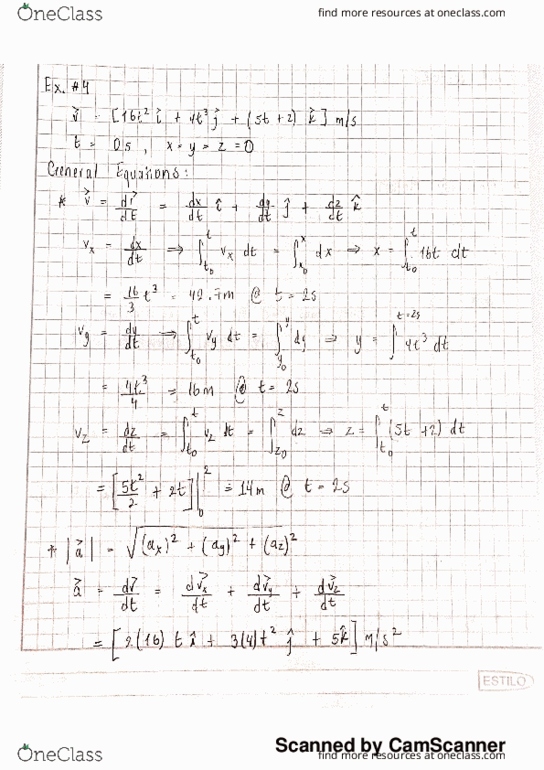 OneClass find more resources at oneclass.com
Ex. #4
v⃗ = [16t² î + 4t³ ĵ + (5t + 2) k̂] m/s
t = 0s, x = y = z = 0
General Equations:
* v⃗ = dr⃗/dt = dx/dt î + dy/dt ĵ + dz/dt k̂
vx = dx/dt ⇒ ∫_{t₀}^{t} vx dt = ∫_{x₀}^{x} dx ⇒ x = ∫_{t₀}^{t} 16t dt
= 16/3 t³ = 42.7m @ t = 2s
vy = dy/dt ⇒ ∫_{t₀}^{t} vy dt = ∫_{y₀}^{y} dy ⇒ y = ∫^{t=2s} 4t³ dt
= 4t³/4 = 16m @ t = 2s
vz = dz/dt = ∫_{t₀}^{t} vz dt = ∫_{z₀}^{z} dz ⇒ z = ∫_{t₀}^{t} (5t + 2) dt
= [5t²/2 + 2t]|₀² = 14m @ t = 2s
* |a⃗| = √(ax)² + (ay)² + (az)²
a⃗ = dv⃗/dt = dv⃗x/dt + dv⃗y/dt + dv⃗z/dt
= [2(16) t î + 3(4)t² ĵ + 5k̂] m/s²
ESTILO
Scanned by CamScanner
OneClass find more resources at oneclass.com